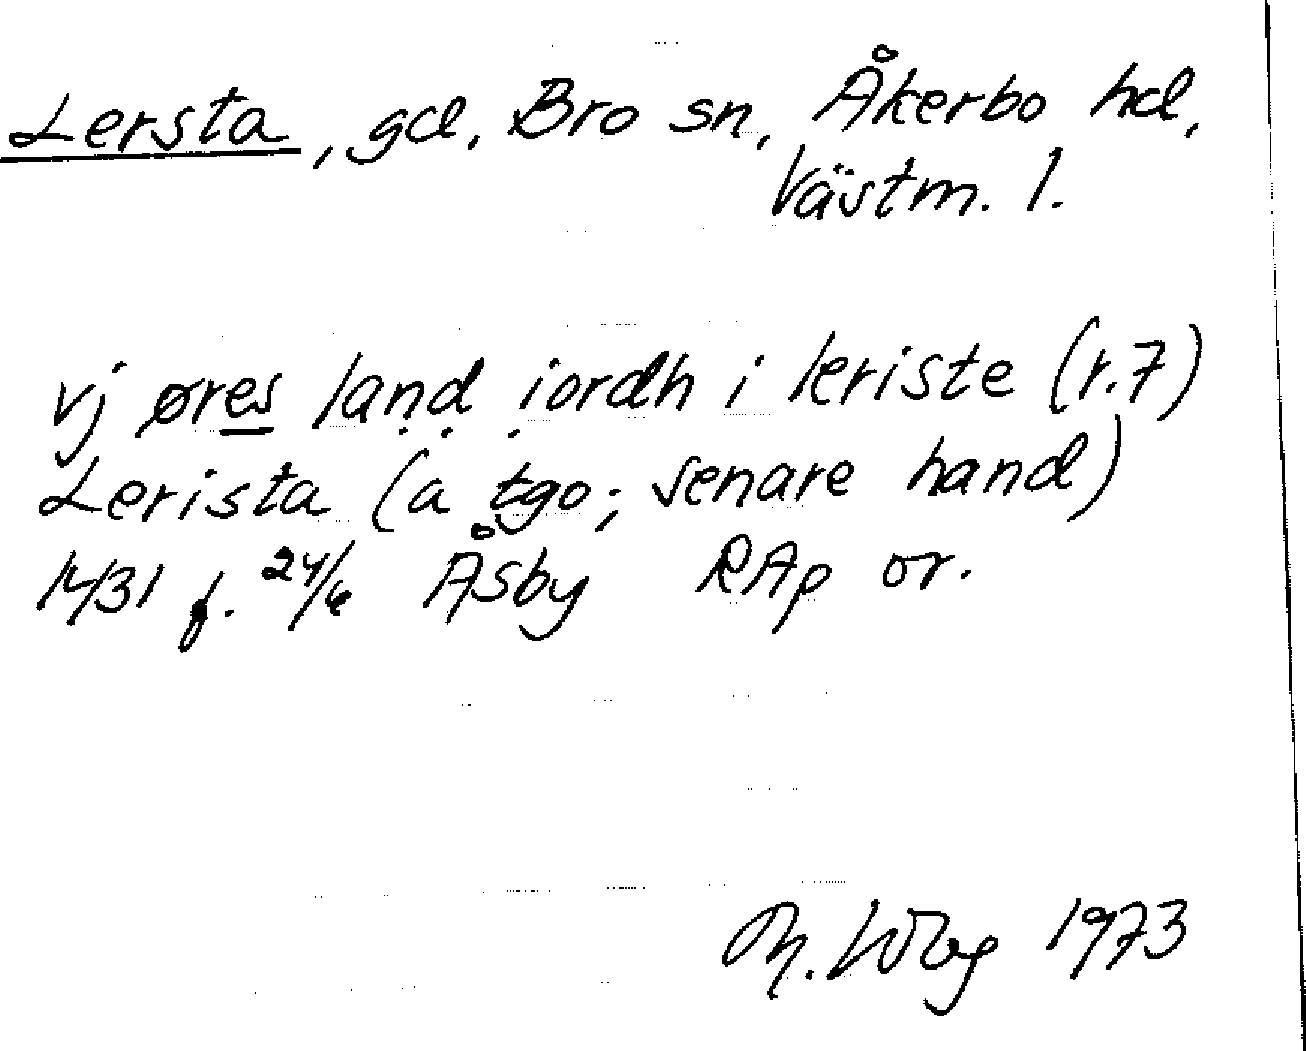 Lersta, gd, Bro sn, Åkerbo hd,
Västm. l.
vj øres land iordh i leriste (r.7)
Lerista (a tgo; senare hand)
1431 f. 24/6 Åsby RAp or.
1973